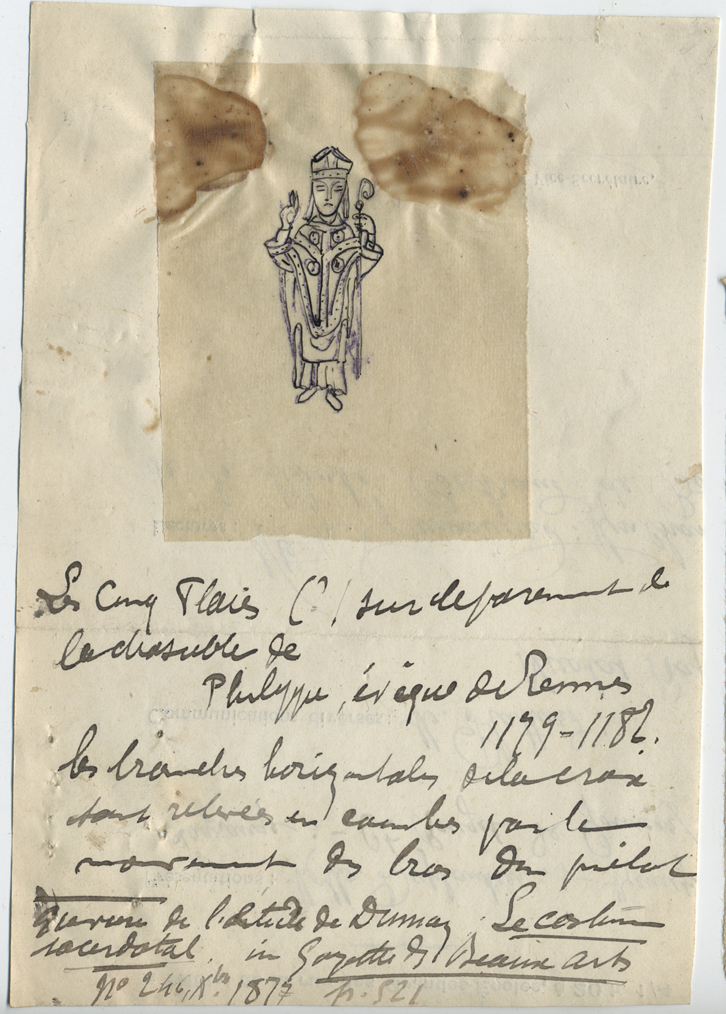 Les Cinq Plaies (?) sur le parement de
la chasuble de
Philippe, évêque de Rennes
1179-1182.
les branches horizontales de la croix
sont relevées en courbes par le
mouvement des bras du prélat
gravure de l'article de Dumay Le costume
sacerdotal, in Gazette des Beaux arts
No 246, Xbre 1877 p. 521
Vice Secrétaire.
Lectures :
Communications diverses :